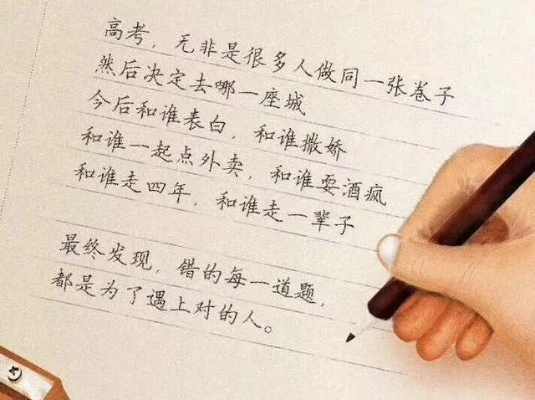 高考，无非是很多人做同一张卷子
然后决定去哪一座城
今后和谁表白，和谁撒娇
和谁一起点外卖，和谁耍酒疯
和谁走四年，和谁走一辈子
最终发现，错的每一道题，
都是为了遇上对的人。